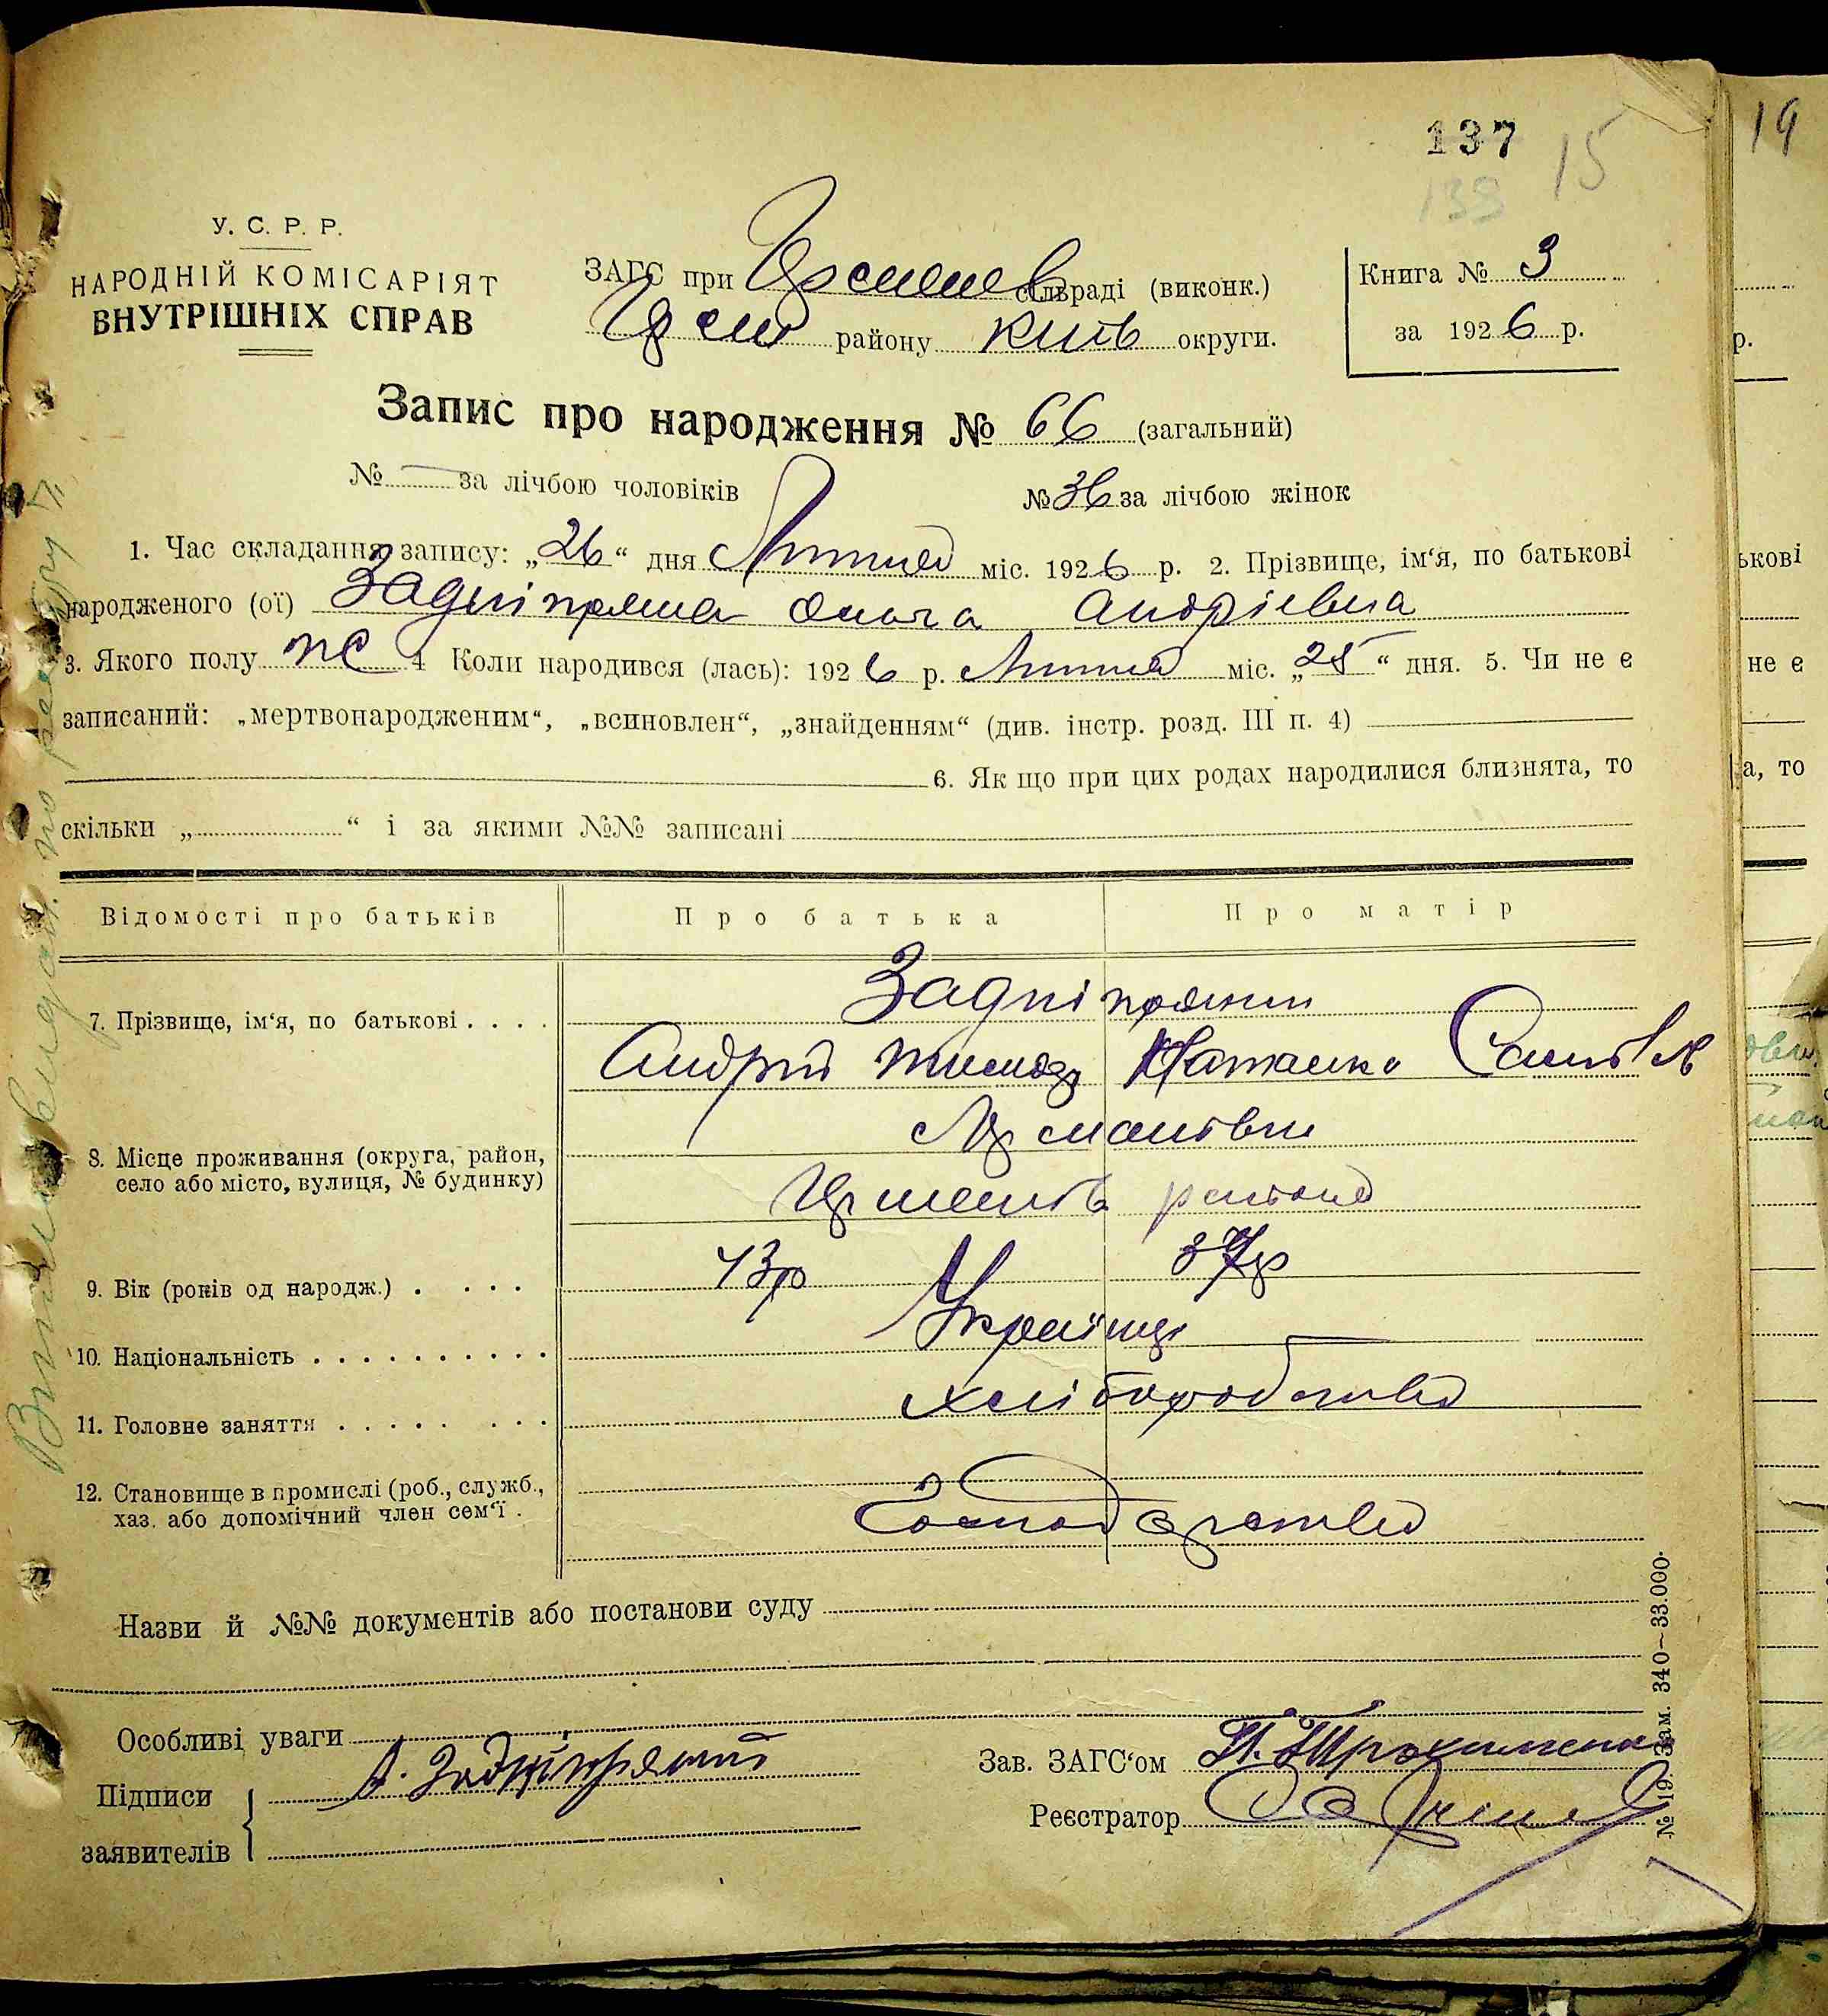 137 15
138
19
У. С. Р. Р.
НАРОДНІЙ КОМІСАРІЯТ
ВНУТРІШНІХ СПРАВ
ЗАГС при сільраді (виконк.)
району Київ округи.
Книга № 3
за 1926 р.
Запис про народження № 66 (загальний)
№ — за лічбою чоловіків № 36 за лічбою жінок
1. Час складання запису: „26“ дня міс. 1926 р. 2. Прізвище, ім'я, по батькові
народженого (ої) Задніпряна Ольга Андріевна
3. Якого полу ж 4 Коли народився (лась): 1926 р. міс. „25“ дня. 5. Чи не є
записаний: „мертвонародженим“, „всиновлен“, „знайденням“ (див. інстр. розд. III п. 4)
6. Як що при цих родах народилися близнята, то
скільки „ “ і за якими №№ записані
Відомості про батьків Про батька Про матір
7. Прізвище, ім'я, по батькові . . . . Задніпряни
Андрій
8. Місце проживання (округа, район,
село або місто, вулиця, № будинку)
района
9. Вік (років од народж.) . . . . 43р 37р
10. Національність . . . . . . . . . . Українці
11. Головне заняття . . . . . . . . хліборобство
12. Становище в промислі (роб., служб.,
хаз. або допомічний член сем'ї .
Господарство
Назви й №№ документів або постанови суду
Особливі уваги
Підписи
заявителів
А. Задніпряний
Зав. ЗАГС'ом
Реєстратор
№ 19. Зам. 340—33.000.
р.
ькові
не є
а, то